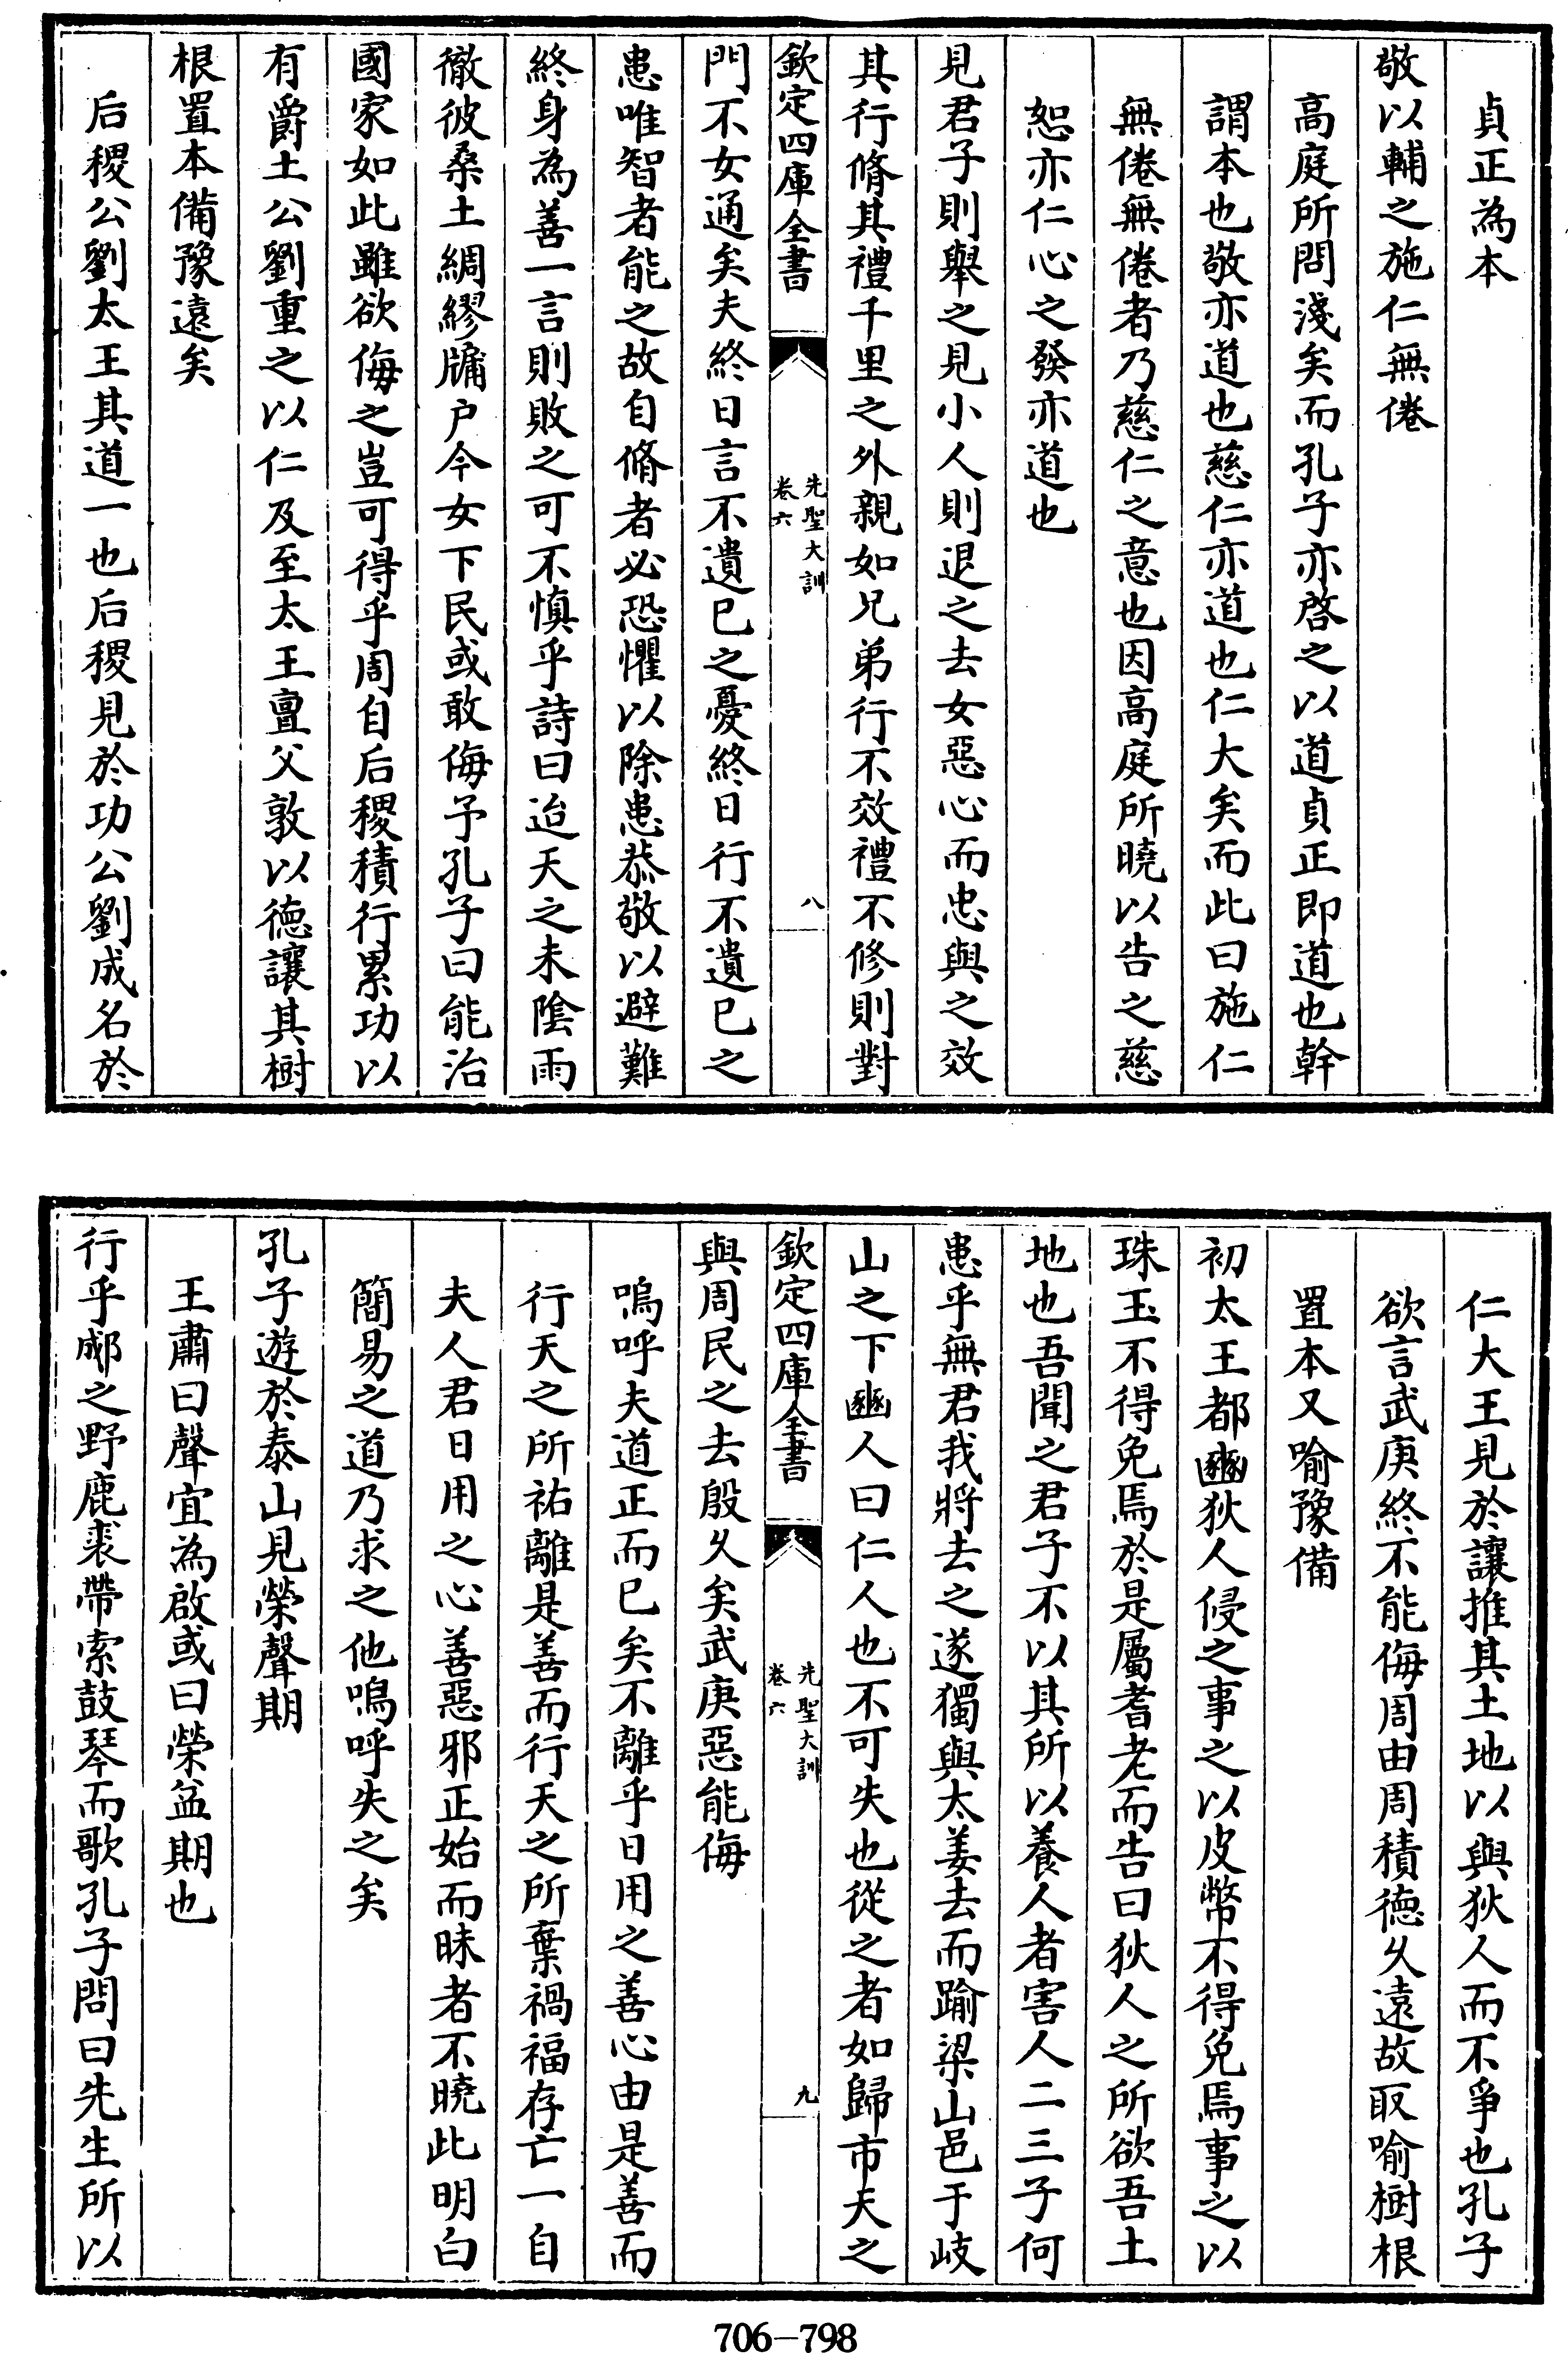 貞正為本
敬以輔之施仁無倦
高庭所問淺矣而孔子亦啓之以道貞正即道也幹
謂本也敬亦道也慈仁亦道也仁大矣而此曰施仁
無倦無倦者乃慈仁之意也因高庭所曉以告之慈
恕亦仁心之發亦道也
見君子則舉之見小人則退之去女惡心而忠與之效
其行脩其禮千里之外親如兄弟行不效禮不修則對
欽定四庫全書
先聖大訓
卷六
八
門不女通矣夫終日言不遺已之憂終日行不遺已之
患唯智者能之故自脩者必恐懼以除患恭敬以避難
終身為善一言則敗之可不慎乎詩曰迨天之未陰雨
徹彼桑土綢繆牖户今女下民或敢侮予孔子曰能治
國家如此雖欲侮之豈可得乎周自后稷積行累功以
有爵土公劉重之以仁及至太王亶父敦以德讓其樹
根置本備豫遠矣
后稷公劉太王其道一也后稷見於功公劉成名於
仁大王見於讓推其土地以與狄人而不爭也孔子
欲言武庚終不能侮周由周積德乆遠故取喻樹根
置本又喻豫備
初太王都豳狄人侵之事之以皮幣不得免焉事之以
珠玉不得免焉於是屬耆老而告曰狄人之所欲吾土
地也吾聞之君子不以其所以養人者害人二三子何
患乎無君我將去之遂獨與太姜去而踰梁山邑于岐
山之下豳人曰仁人也不可失也從之者如歸市天之
欽定四庫全書
先聖大訓
卷六
九
與周民之去殷乆矣武庚惡能侮
嗚呼夫道正而已矣不離乎日用之善心由是善而
行天之所祐離是善而行天之所棄禍福存亡一自
夫人君日用之心善惡邪正始而昧者不曉此明白
簡易之道乃求之他嗚呼失之矣
孔子遊於泰山見榮聲期
王肅曰聲宜為啟或曰榮益期也
行乎郕之野鹿裘帶索鼓琴而歌孔子問曰先生所以
706—798